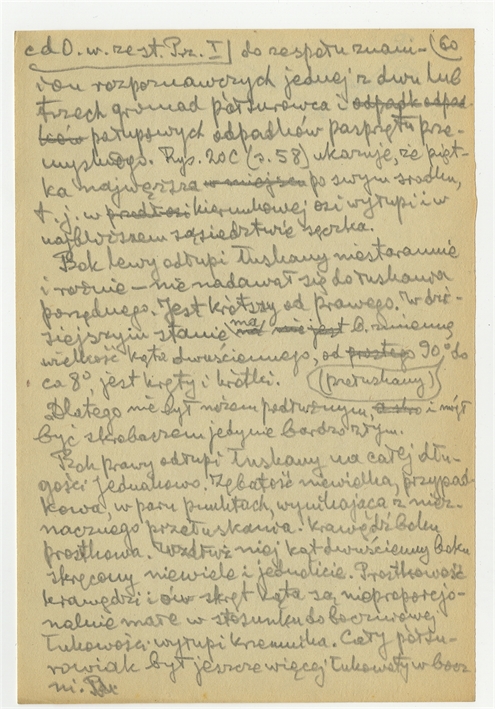 cd O. w. zest. Prz. I] do zespołu znami- (60
ion rozpoznawczych jednej z dwu lub
trzech gromad półsurowca i odpadk odpad
ków połupowych odpadków pasprzętu prze-
mysłowego. Rys. 20C (s. 58) ukazuje, że pięt-
ka najwęższa w miejscu po swym środku,
t. j. w przedłosi kierunkowej osi wyłupi i w
najbliższem sąsiedztwie sęczka.
Bok lewy odłupi łuskany niestarannie
i różnie – nie nadawał się do łuskania
porządnego. Jest krótszy od prawego. W dzi-
siejszym stanie ma nie jest b. zmienną
wielkość kąta dwuściennego, od prostego 90° do
ca 8°, jest kręty i krótki. (przełuskany)
Dlatego nie był nożem podłużnym a sko i mógł
być skrobaczem jedynie bardzo złym.
Bok prawy odłupi łuskany na całej dłu-
gości jednakowo. Zębatość niewielka, przypad-
kowa, w paru punktach, wynikająca z niez-
nacznego przełuskania. Krawędź boku
prostkowa. Wzdłuż niej kąt dwuścienny boku
skręcony niewiele i jednolicie. Prostkowość
krawędzi i ów skręt kąta są nieproporcjo-
nalnie małe w stosunku do bocznicowej
łukowości wyłupi krzemnika. Cały półsu-
rowiak był jeszcze więcej łukowaty w bocz
ni.